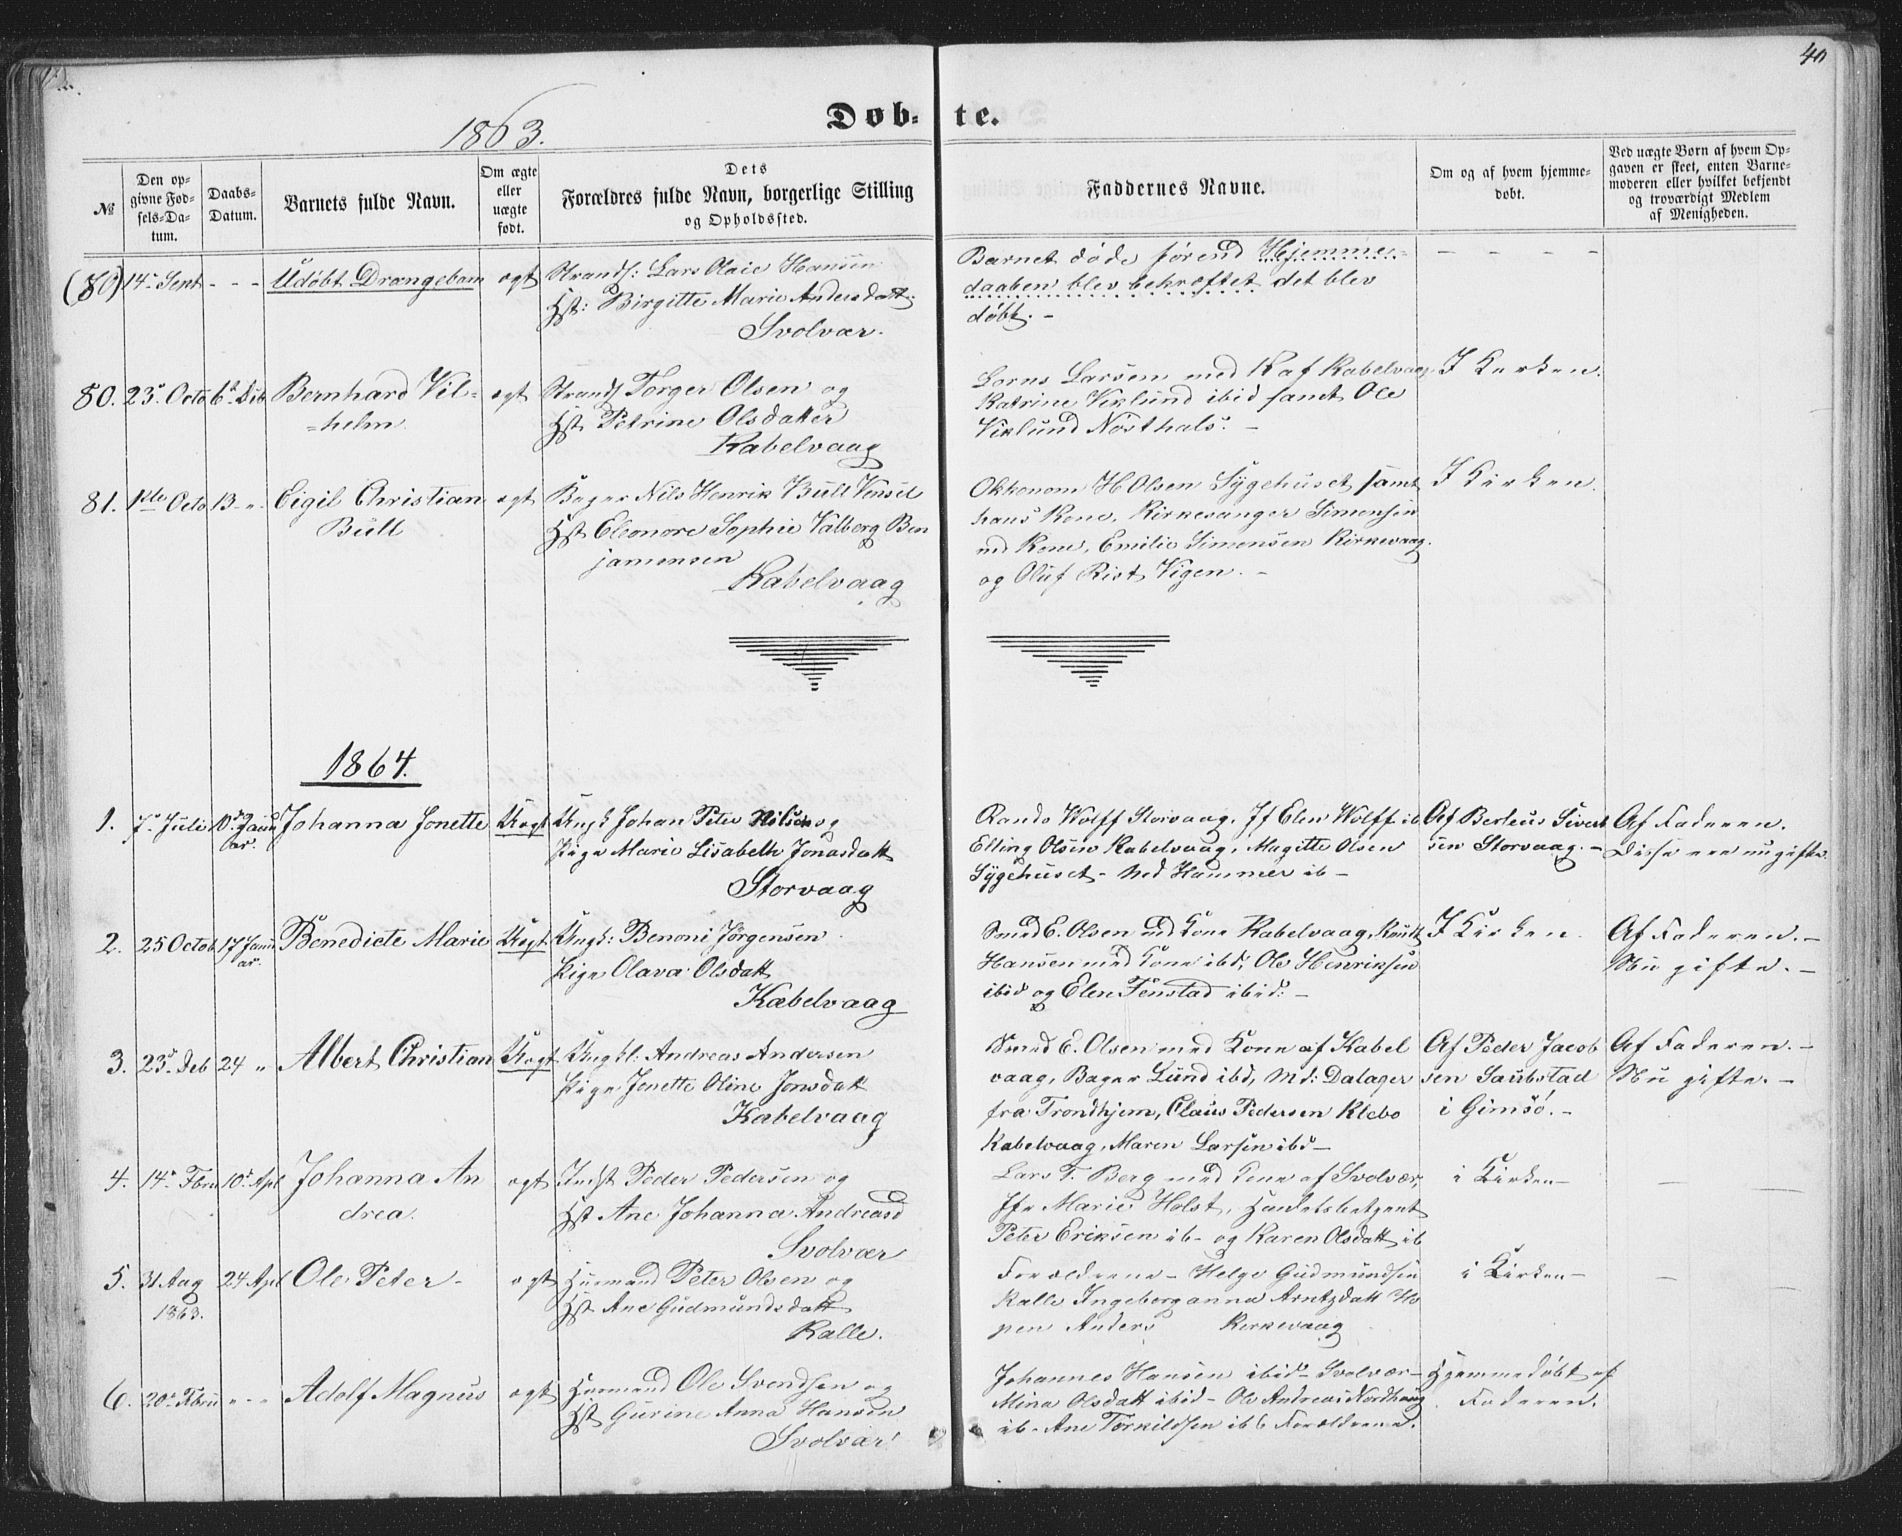 40
1863.
Døb-te.
№
Den op-
givne Fød-
sels-Da-
tum.
Daabs-
Datum.
Barnets fulde Navn.
Om ægte
eller
uægte
født.
Dets
Forældres fulde Navn, borgerlige Stilling
og Opholdssted.
Faddernes Navne.
Om og af hvem hjemme-
døbt.
Ved uægte Børn af hvem Op-
gaven er skeet, enten Barne-
moderen eller hvilket bekjendt
og troværdigt Medlem
af Menigheden.
(80) 14de Sept - - - Udøbt Drængebarn ægt Strands: Lars Olaie Hansen
Hst: Birgitte Marie Andersdatt.
Svolvær.
Barnet døde førend Hjemme-
daaben blev bekræftet det blev
døbt. -
80. 23de Octo 6te Dcb Bernhard Vil-
=helm.
ægt Strands Torger Olsen og
Hst Petrine Olsdatter
Kabelvaag
Lorns Larsen med Kaf Kabelvaag
Katrine Viklund ibid samt Ole
Viklund Nøsthals. -
I Kirken.
81. 1ste Octo 13 - " Eigil Christian
Bull
ægt Bager Nils Henrik Bull Vensel
Hst Eleonore Sophie Valberg Ben
jamensen
Kabelvaag
Okkonom H Olsen Sygehuset samt
hans Kone, Kirkesanger Simensen
md Kone, Emilie Simensen Kirkevaag.
og Oluf Rist Vigen. -
I Kirken.
1864.
1. 7de Juli 10de Janu
ar.
Johanna Jonette Uægt Ungk Johan Peter Nilsen og
Pige Marie Lisabeth Jonasdatt
Storvaag
Rando Wolff Storvaag, Jf Elen Wolff ib
Elling Olsen Kabelvaag, Magitte Olsen
Sygehuset - Ned Hammer ib -
Af Berteus Sivert
sen Storvaag. -
Af Faderen.
Disse ere ugifte.
2. 25 Octob 17 Janu
ar.
Benedicte Marie Uægt Ungk: Benoni Jørgensen
Pige Olava Olsdatt
Kabelvaag
Smed E. Olsen md Kone Kabelvaag, Knudt
Hansen med Kone ibd, Ole Henriksen
ibid og Elen Fenstad ibid. -
I Kirken.
Af Faderen. -
Nu gifte. -
3. 23de Deb 24 " Albert Christian Uægt Ungkl. Andreas Andersen
Pige Jonette Oline Jonsdatt
Kabelvaag
Smed E. Olsen med Kone af Kabel
vaag, Bager Lund ibd, Md: Dalager
fra Trondhjem, Claus Pedersen Klebo
Kabelvaag, Maren Larsen ibd -
Af Peder Jacob
sen Saubstad
i Gimsø. -
Af Faderen. -
Nu gifte. -
4. 14de Fbru 10de Apl Johanna An
drea.
ægt Indst Peder Pedersen og
Hst Ane Johanna Andreasd
Svolvær
Lars F. Berg med Kone af Svolvær,
Jfr Marie Holst, Handelsbetjent
Peter Eriksen ib - og Karen Olsdatt ib
i Kirken -
5. 31 Aug
1863.
24 Apl Ole Peter - ægt Husmand Peter Olsen og
Hst Ane Gudmundsdatt
Kalle.
Forældrene - Helge Gudmundsen
Kalle Ingeborganna Arntzdatt Ho
pen Anders Kirkevaag
i Kirken -
6. 20de Fbru " - " Adolf Magnus ægt Husmand Ole Svendsen og
Hst Gurine Anna Hansen
Svolvær
Johannes Hansen ibid - Svolvær -
Mina Olsdatt ibid - Ole Andreas Nordhaug
ib - Ane Torkildsen ib & Forældrene.
Hjemmedøbt af
Faderen.